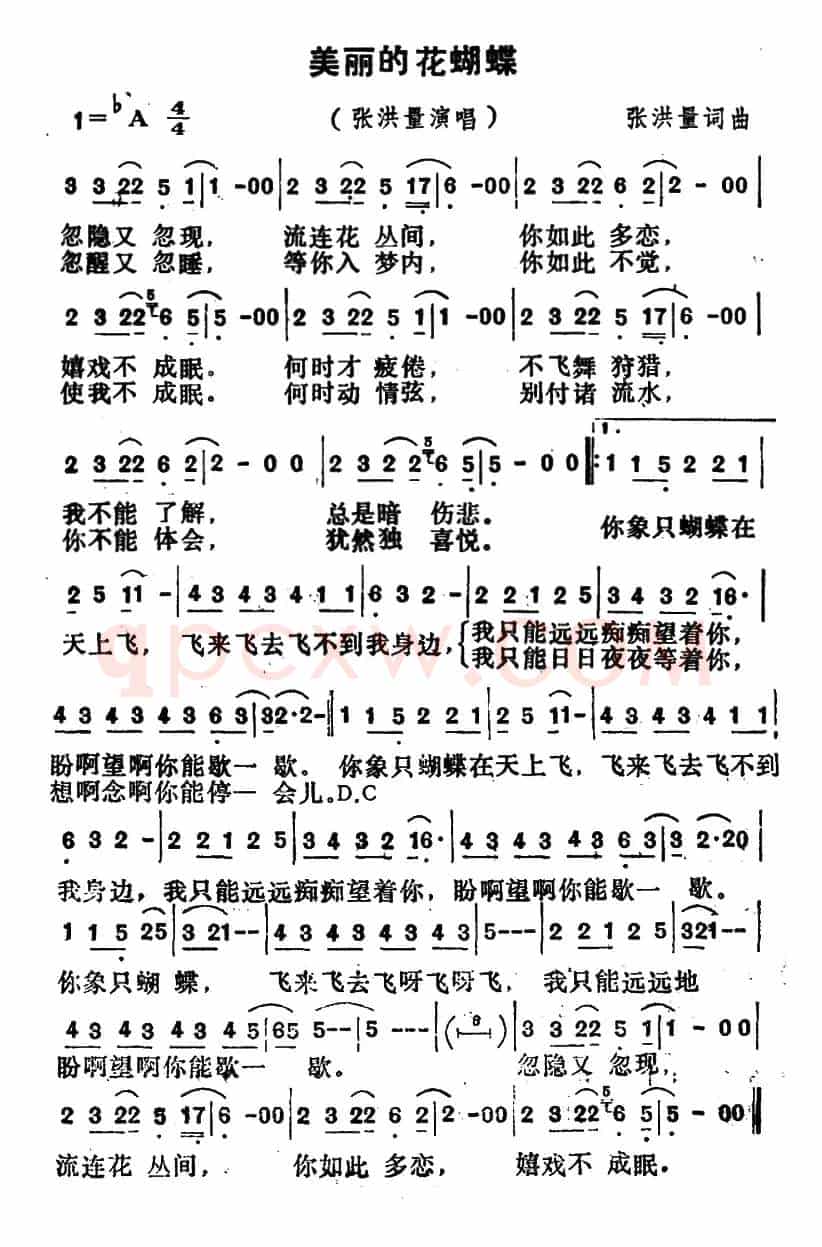 美丽的花蝴蝶
1=♭A 4/4 （张洪量演唱） 张洪量词曲
3 3 22 5 1|1 -00|2 3 22 5 17|6 -00|2 3 22 6 2|2 -00|
忽隐又 忽现， 流连花 丛间， 你如此 多恋，
忽醒又 忽睡， 等你入 梦内， 你如此 不觉，
2 3 22 5 6 5|5 -00|2 3 22 5 1|1 -00|2 3 22 5 17|6 -00|
嬉戏不 成眠。 何时才 疲倦， 不飞舞 狩猎，
使我不 成眠。 何时动 情弦， 别付诸 流水，
2 3 22 6 2|2 - 0 0|2 3 2 2 5 6 5|5 - 0 0:1. 1 1 5 2 2 1|
我不能 了解， 总是暗 伤悲。 你象只蝴蝶在
你不能 体会， 犹然独 喜悦。
2 5 11 -|4 3 4 3 4 1 1|6 3 2 -|2 2 1 2 5|3 4 3 2 16·|
天上飞， 飞来飞去飞不到我身边，{我只能远远痴痴望着你，
{我只能日日夜夜等着你，
qpcxw.COM
4 3 4 3 4 3 6 3|32·2-‖1 1 5 2 2 1|2 5 11-|4 3 4 3 4 1 1|
盼啊望啊你能歇一 歇。 你象只蝴蝶在天上飞， 飞来飞去飞不到
想啊念啊你能停一 会儿。D.C
6 3 2 -|2 2 1 2 5|3 4 3 2 16·|4 3 4 3 4 3 6 3|3 2·20|
我身边，我只能远远痴痴望着你，盼啊望啊你能歇一 歇。
1 1 5 25|3 21--|4 3 4 3 4 3 4 3|5---|2 2 1 2 5|321--|
你象只蝴 蝶， 飞来飞去飞呀飞呀飞， 我只能远远地
4 3 4 3 4 3 4 5|65 5--|5 ---|(6)|3 3 22 5 1|1 - 0 0|
盼啊望啊你能歇一 歇。 忽隐又 忽现，
2 3 22 5 17|6 -00|2 3 22 6 2|2 -00|2 3 22 5 6 5|5 -00‖
流连花 丛间， 你如此 多恋， 嬉戏不 成眠。